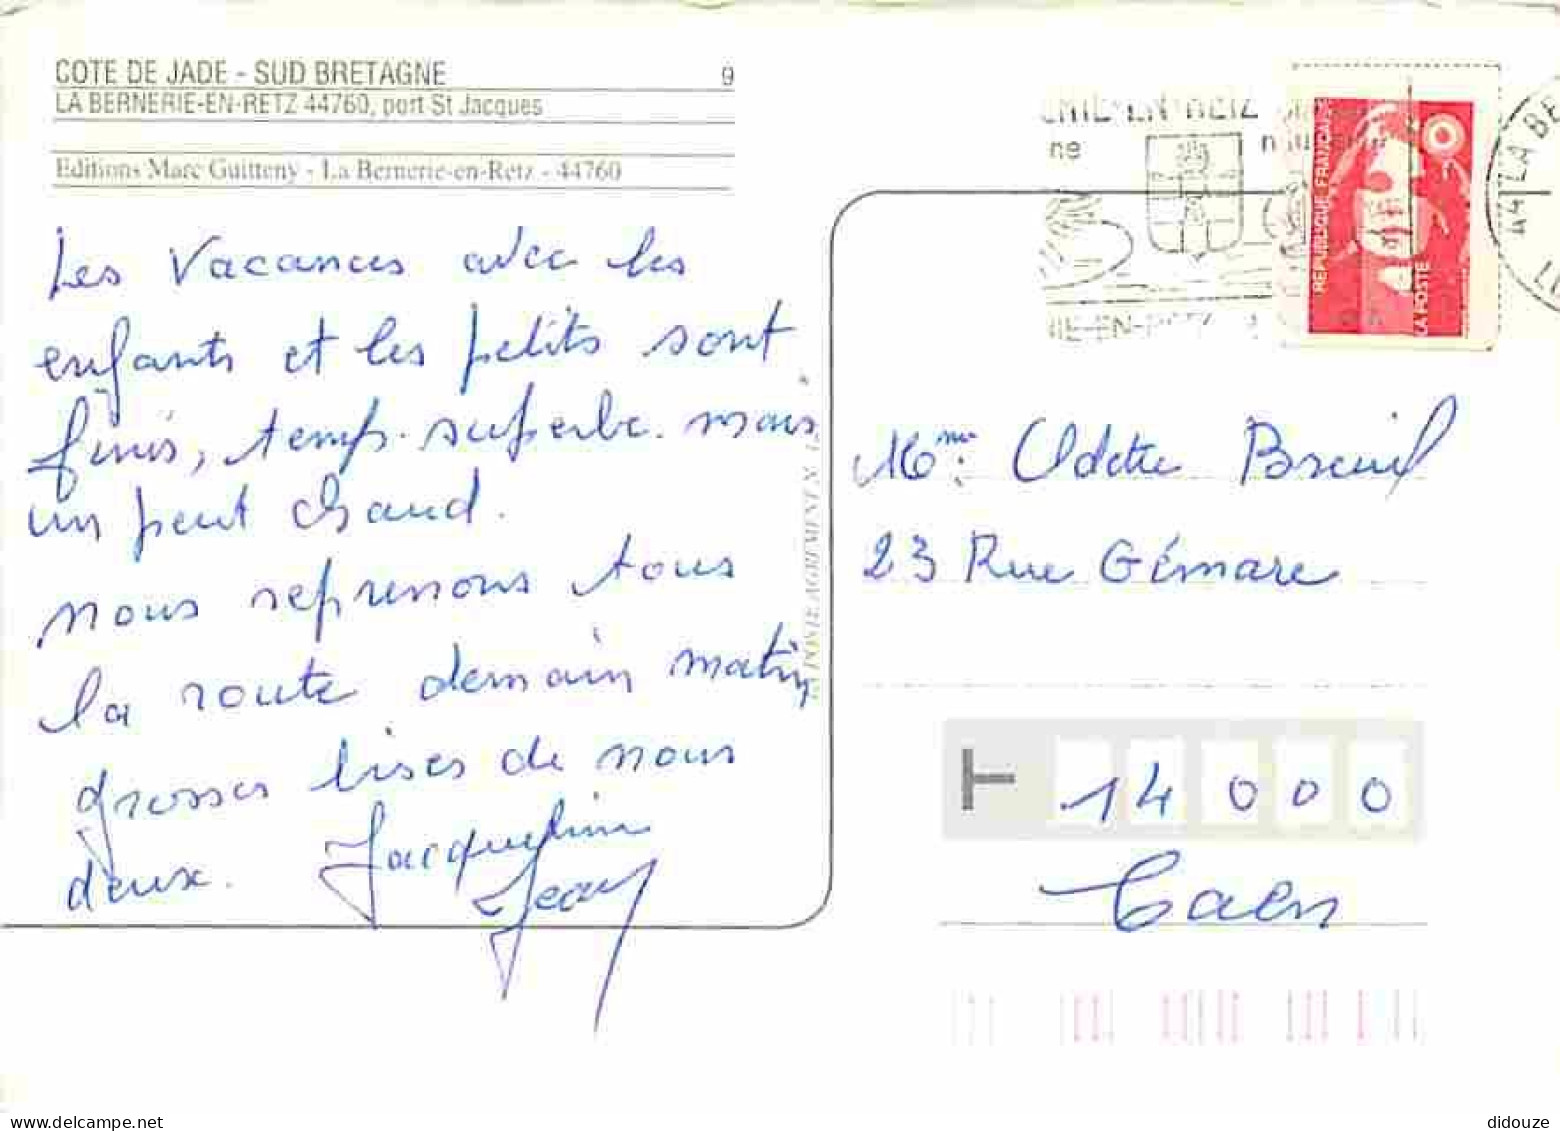 COTE DE JADE - SUD BRETAGNE 9
LA BERNERIE-EN-RETZ 44760, port St Jacques
Editions Marc Guitteny - La Bernerie-en-Retz - 44760
Les Vacances avec les
enfants et les petits sont
finis, temps superbe. mais
un peut chaud.
nous reprenons tous
la route demain matin
grosses bises de nous
deux. Jacqueline
Jean
LA POSTE AGREMENT N°
REPUBLIQUE FRANÇAISE
LA POSTE
44 LA BE
Mme. Odette Breuil
23 Rue Gémare
14 000
Caen
didouze